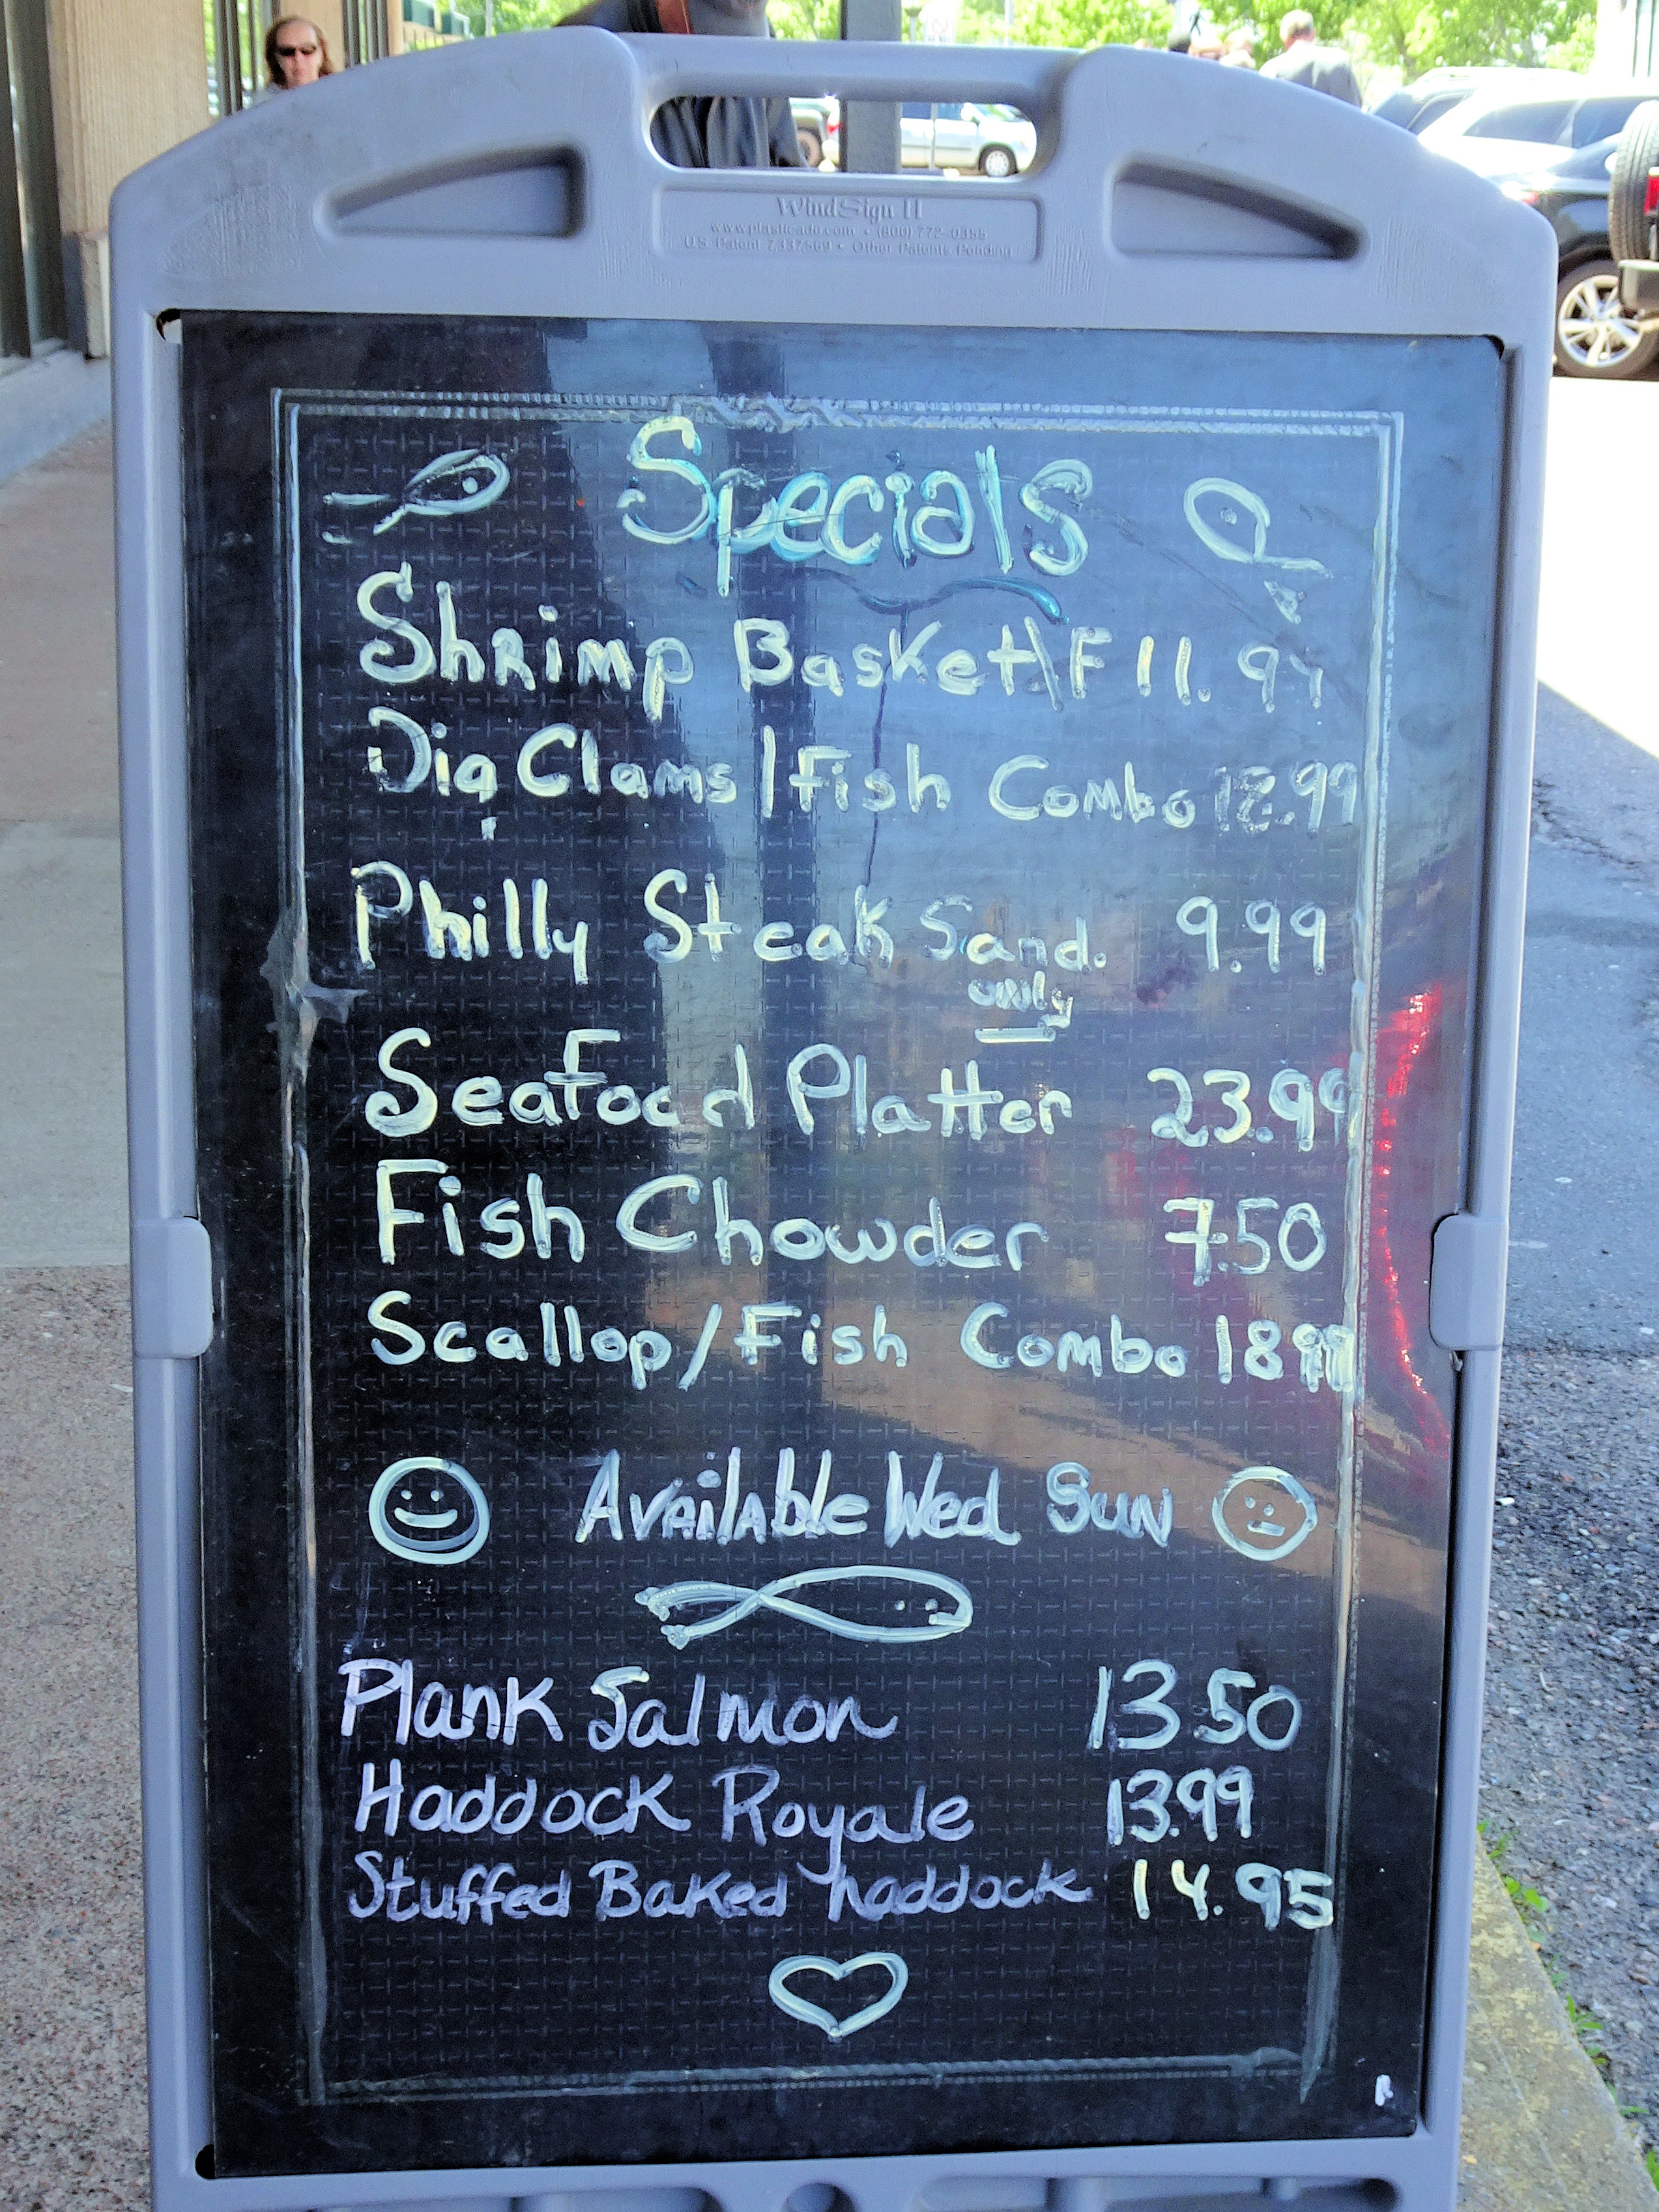 WindSign II
www.plasticade.com • (800) 772-0355
U.S. Patent 7,337,569 • Other Patents Pending
Specials
Shrimp Basket\F 11.99
Dig Clams / Fish Combo 18.99
Philly Steak Sand. 9.99
only
Seafood Platter 23.99
Fish Chowder 7.50
Scallop/Fish Combo 18 99
Available Wed Sun
Plank Salmon 13 50
Haddock Royale 13.99
Stuffed Baked haddock 14.95